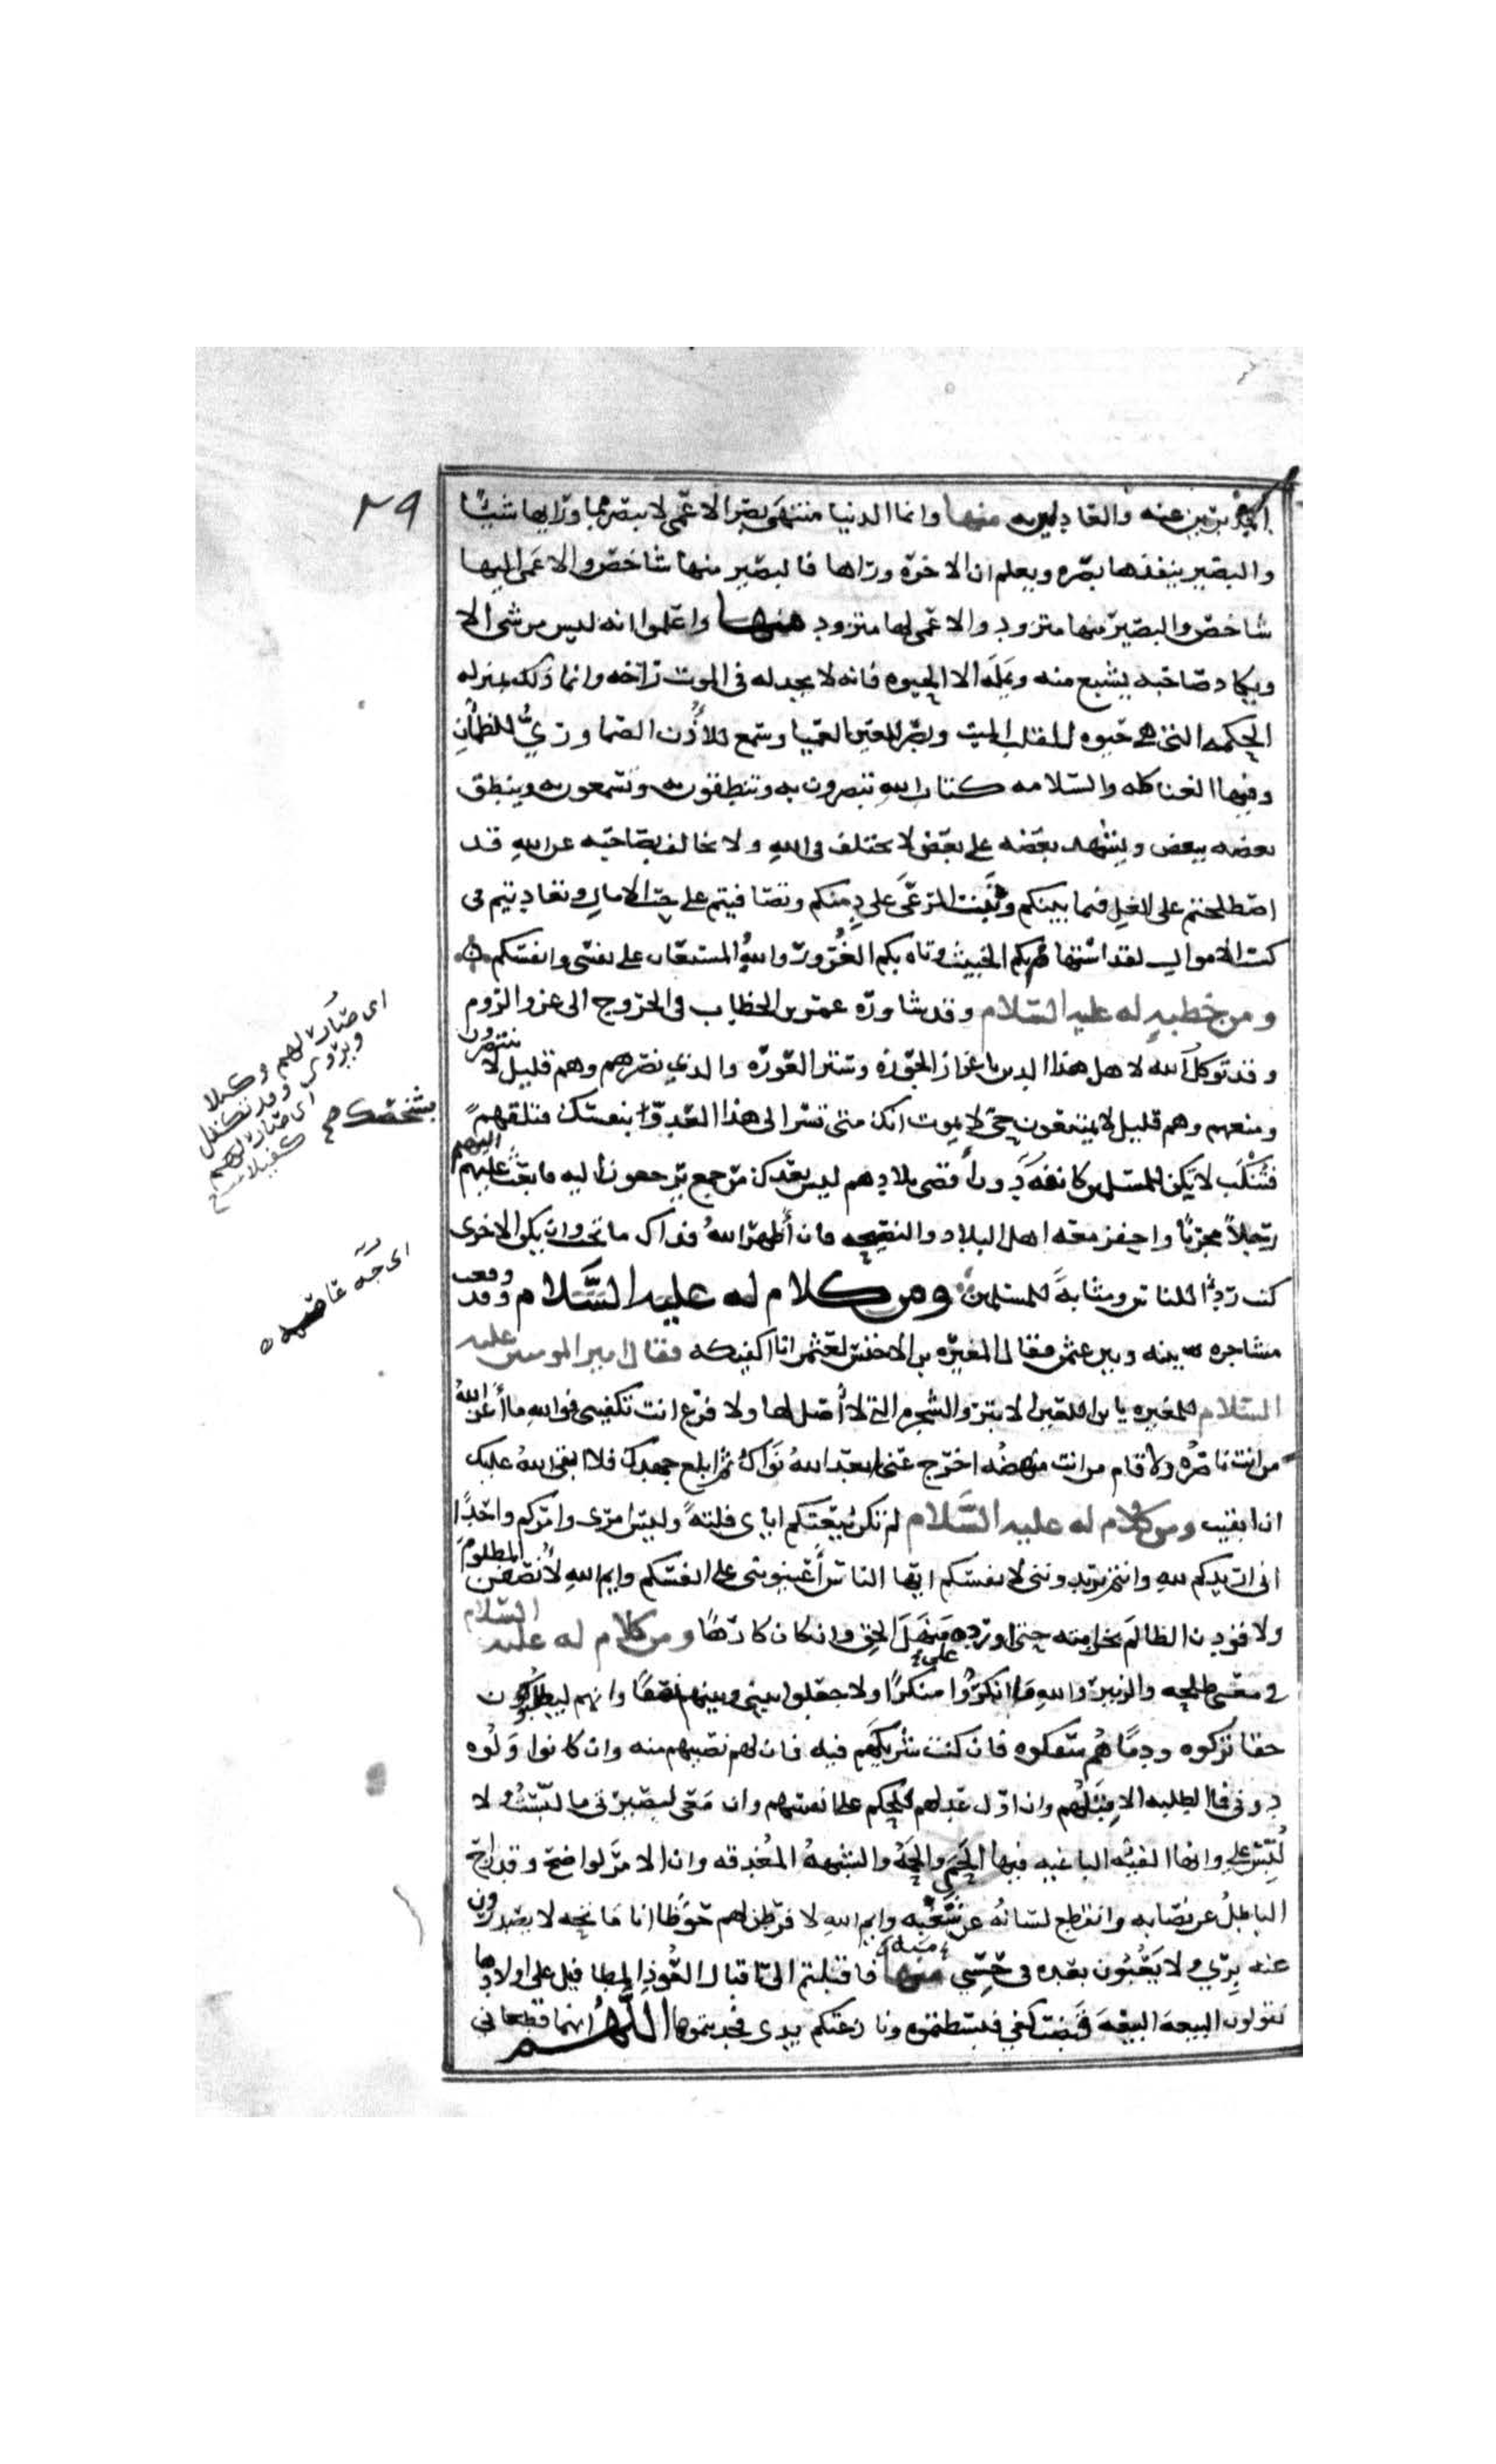 المدبرين عنه والعادلين به منها وانما الدنيا منتهى بصر الاعمى لا يبصر مما وراها شيئا
والبصير ينفذها بصره ويعلم ان الاخره وراها فالبصير منها شاخص والاعمى اليها
شاخص والبصير منها متزود والاعمى لها متزود منها واعلموا انه ليس من شى الا
ويكاد صاحبه يشبع منه ويمله الا الحيوه فانه لا يجد له فى الموت راحه وانما ذلك بمنزله
الحكمه التى هى حيوه للقلب الميت وبصر للعين العميا وسمع للأذن الصما ورىّ للظمآن
وفيها الغنا كله والسلامه كتاب الله تبصرون به وتنطقون به وتسمعون به وينطق
بعضه ببعض ويشهد بعضه على بعض لا يختلف فى الله ولا يخالف بصاحبه عن الله قد
اصطلحتم على الغل فيما بينكم ونبت المرعى على دمنكم وتصافيتم على حب الامال وتعاديتم فى
كسب الاموال لقد استهام بكم الخبيث وتاه بكم الغرور والله المستعان على نفسى وانفسكم
ومن خطبه له عليه السلام وقد شاوره عمر بن الخطاب فى الخروج الى غزو الروم
وقد توكل الله لاهل هذا الدين باعزاز الحوزه وستر العوره والذى نصرهم وهم قليل لا ينتصرون
ومنعهم وهم قليل لا يمتنعون حى لا يموت انك متى تسر الى هذا العدو بنفسك فتلقهم
فتنكب لا يكن للمسلمين كانفه دون اقصى بلادهم ليس بعدك مرجع يرجعون اليه فابعث عليهم اليهم
رجلاً مجربًا واحفز معه اهل البلاد والنصيحه فان أظهر الله فذاك ما تحب وان يكن الاخرى
كنت ردءا للناس ومثابة للمسلمين ومن كلام له عليه السَّلام وقد وقعت
مشاجره بينه وبين عثمن فقال المغيره بن الاخنس لعثمن انا اكفيكه فقال امير المومنين عليه
السلام للمغيره يا بن اللعين الابتر والشجره التى لا أصل لها ولا فرع انت تكفينى فوالله ما أعز الله
من انت ناصره ولا قام من انت منهضه اخرج عنا ابعد الله نواك ثم ابلغ جهدك فلا ابقى الله عليك
ان ابقيت ومن كلام له عليه السَّلام لم تكن بيعتكم اياى فلتةً وليس امرى وامركم واحدًا
انى اريدكم لله وانتم تريدوننى لانفسكم ايها الناس أعينونى على انفسكم وايم الله لأنصفن المظلوم
ولاقودن الظالم بخزامته حتى اورده منهل الحق وان كان كارهًا ومن كلام له عليه السلام
فى معنى طلحه والزبير والله ما انكروا على منكرًا ولا جعلوا بينى وبينهم نصفًا وانهم ليطلبون
حقا تركوه ودمًا هم سفكوه فان كنت شريكهم فيه فان لهم نصيبهم منه وان كانوا ولوه
دونى فما الطلبه الا قبلهم وان اول عدلهم للحكم على انفسهم وان معى لبصيرتى ما لبّست ولا
لُبّس على وانها الفئه الباغيه فيها الحمى والحمه والشبهه المغدفه وان الامر لواضح وقد زاح
الباطل عن نصابه وانقطع لسانه عن شغبه وايم الله لافرطن لهم حوضا انا ماتحه لا يصدرون
عنه برىّ ولا يعبّون بعده فى حسى منها فاقبلتم الى اقبال العوذ المطافيل على اولادها
تقولون البيعة البيعة قبضت كفى فبسطتموه ونازعتكم يدى فجذبتموها اللهم انهما قطعانى
٢٩
اى صار لهم وكيلا
ويروى وقد تكفل
اى صار لهم
كفيلا
بشخصك
اى جهه عاصمه